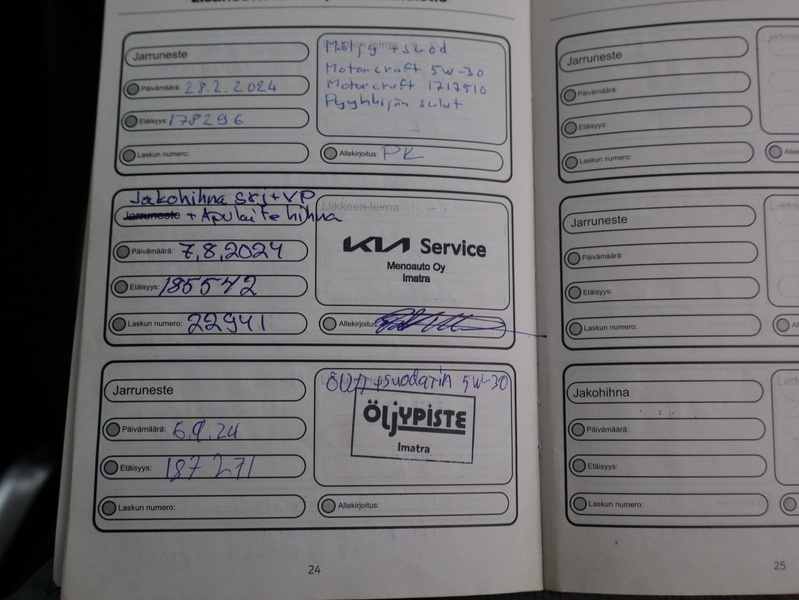 Jarruneste
Päivämäärä: 28.2.2024
Etäisyys: 178296
Laskun numero:
Öljy + suod
Motorcraft 5W-30
Motorcraft 1717510
Pyyhkijän sulat
Allekirjoitus: PK
Jakohihna srj + VP
Jarruneste + Apulaitehihna
Päivämäärä: 7,8,2024
Etäisyys: 185542
Laskun numero: 22941
Liikkeen leima
KIA Service
Menoauto Oy
Imatra
Allekirjoitus:
Jarruneste
Päivämäärä: 6.9.24
Etäisyys: 187 271
Laskun numero:
Öljy + suodatin 5W-30
ÖLJYPISTE
Imatra
Allekirjoitus:
24
Jarruneste
Päivämäärä:
Etäisyys:
Laskun numero:
Jarruneste
Päivämäärä:
Etäisyys:
Laskun numero:
Jakohihna
Päivämäärä:
Etäisyys:
Laskun numero:
25